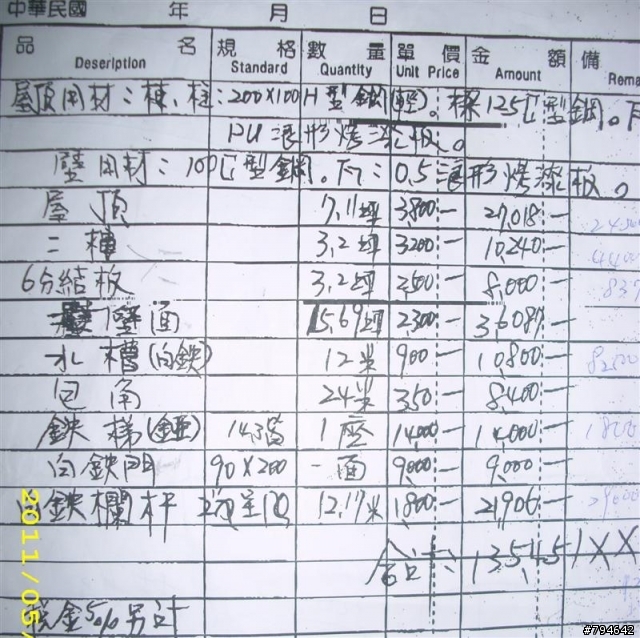 中華民國 年 月 日
品名 規格 數量 單價 金額 備
Description Standard Quantity Unit Price Amount Rema
屋頂用材:棟、柱:200X100H型鋼(輕)。樑125C型鋼。
PU浪形烤漆板。
壁用材:100C型鋼。 :0.5浪形烤漆板。
屋頂 7.11坪 3,800— 27,018—
二樓 3.2坪 3200— 10,240—
6分結板 3.2坪 2,500— 8,000—
壁面 15.69坪 2,300— 36,087—
水槽(白鉄) 12米 900— 10,800—
包角 24米 350— 8,400—
鉄梯(錏) 14階 1座 14,000— 14,000—
白鉄門 90X200 一面 9,000— 9,000—
白鉄欄杆 12.17米 1,800— 21,906—
合計: 135,451XX
稅金5%另計
2011/05/
#794642